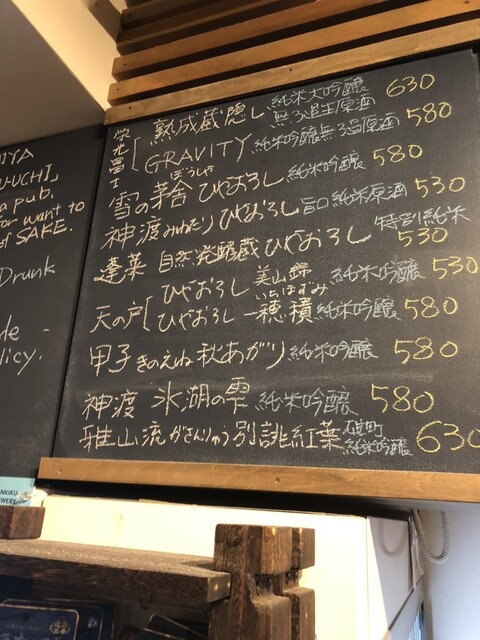 栄光冨士 熟成蔵隠し 純米大吟醸 無ろ過生原酒 630
GRAVITY 純米吟醸無ろ過原酒 580
雪の茅舎 ぼうしゃ ひやおろし 純米吟醸 580
神渡 みわたり ひやおろし 旨口純米原酒 530
蓬莱 自然発酵蔵 ひやおろし 特別純米 530
天の戸 ひやおろし 美山錦 純米吟醸 530
ひやおろし いちほずみ 一穂積 純米吟醸 580
甲子 きのえね 秋あがり 純米吟醸 580
神渡 氷湖の雫 純米吟醸 580
雅山流 がさんりゅう 別誂紅葉 純米吟醸 630
IYA
UCHI」
a pub.
for want to
SAKE.
Drunk
licy.